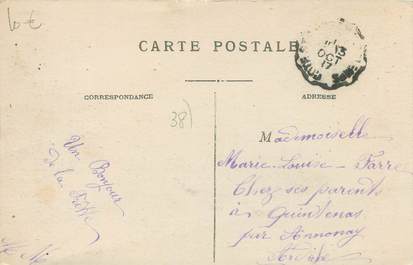 10€
CARTE POSTALE
13
OCT
17
CORRESPONDANCE
ADRESSE
38)
Un Bonjour
de la
Mademoiselle
Marie-Louise - Farre
Chez ses parents
à Quintenas
par Annonay
Ardèche